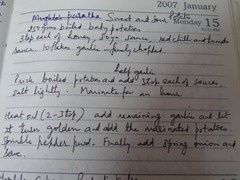 2007 January
Monday 15
Sweet and Sour Potato
250 gms boiled baby potatoes
3tsp each of honey, soya sauce, red chilli and
sauce. 10 flakes garlic - finely chopped.
half garlic
Prick boiled potatoes and add 1tsp each of sauces,
salt lightly. Marinate for an hour.
Heat oil (2-3tsp) add remaining garlic and let
it turn golden and add the marinated potatoes.
Sprinkle pepper powd. Finally add spring onion and
serve.